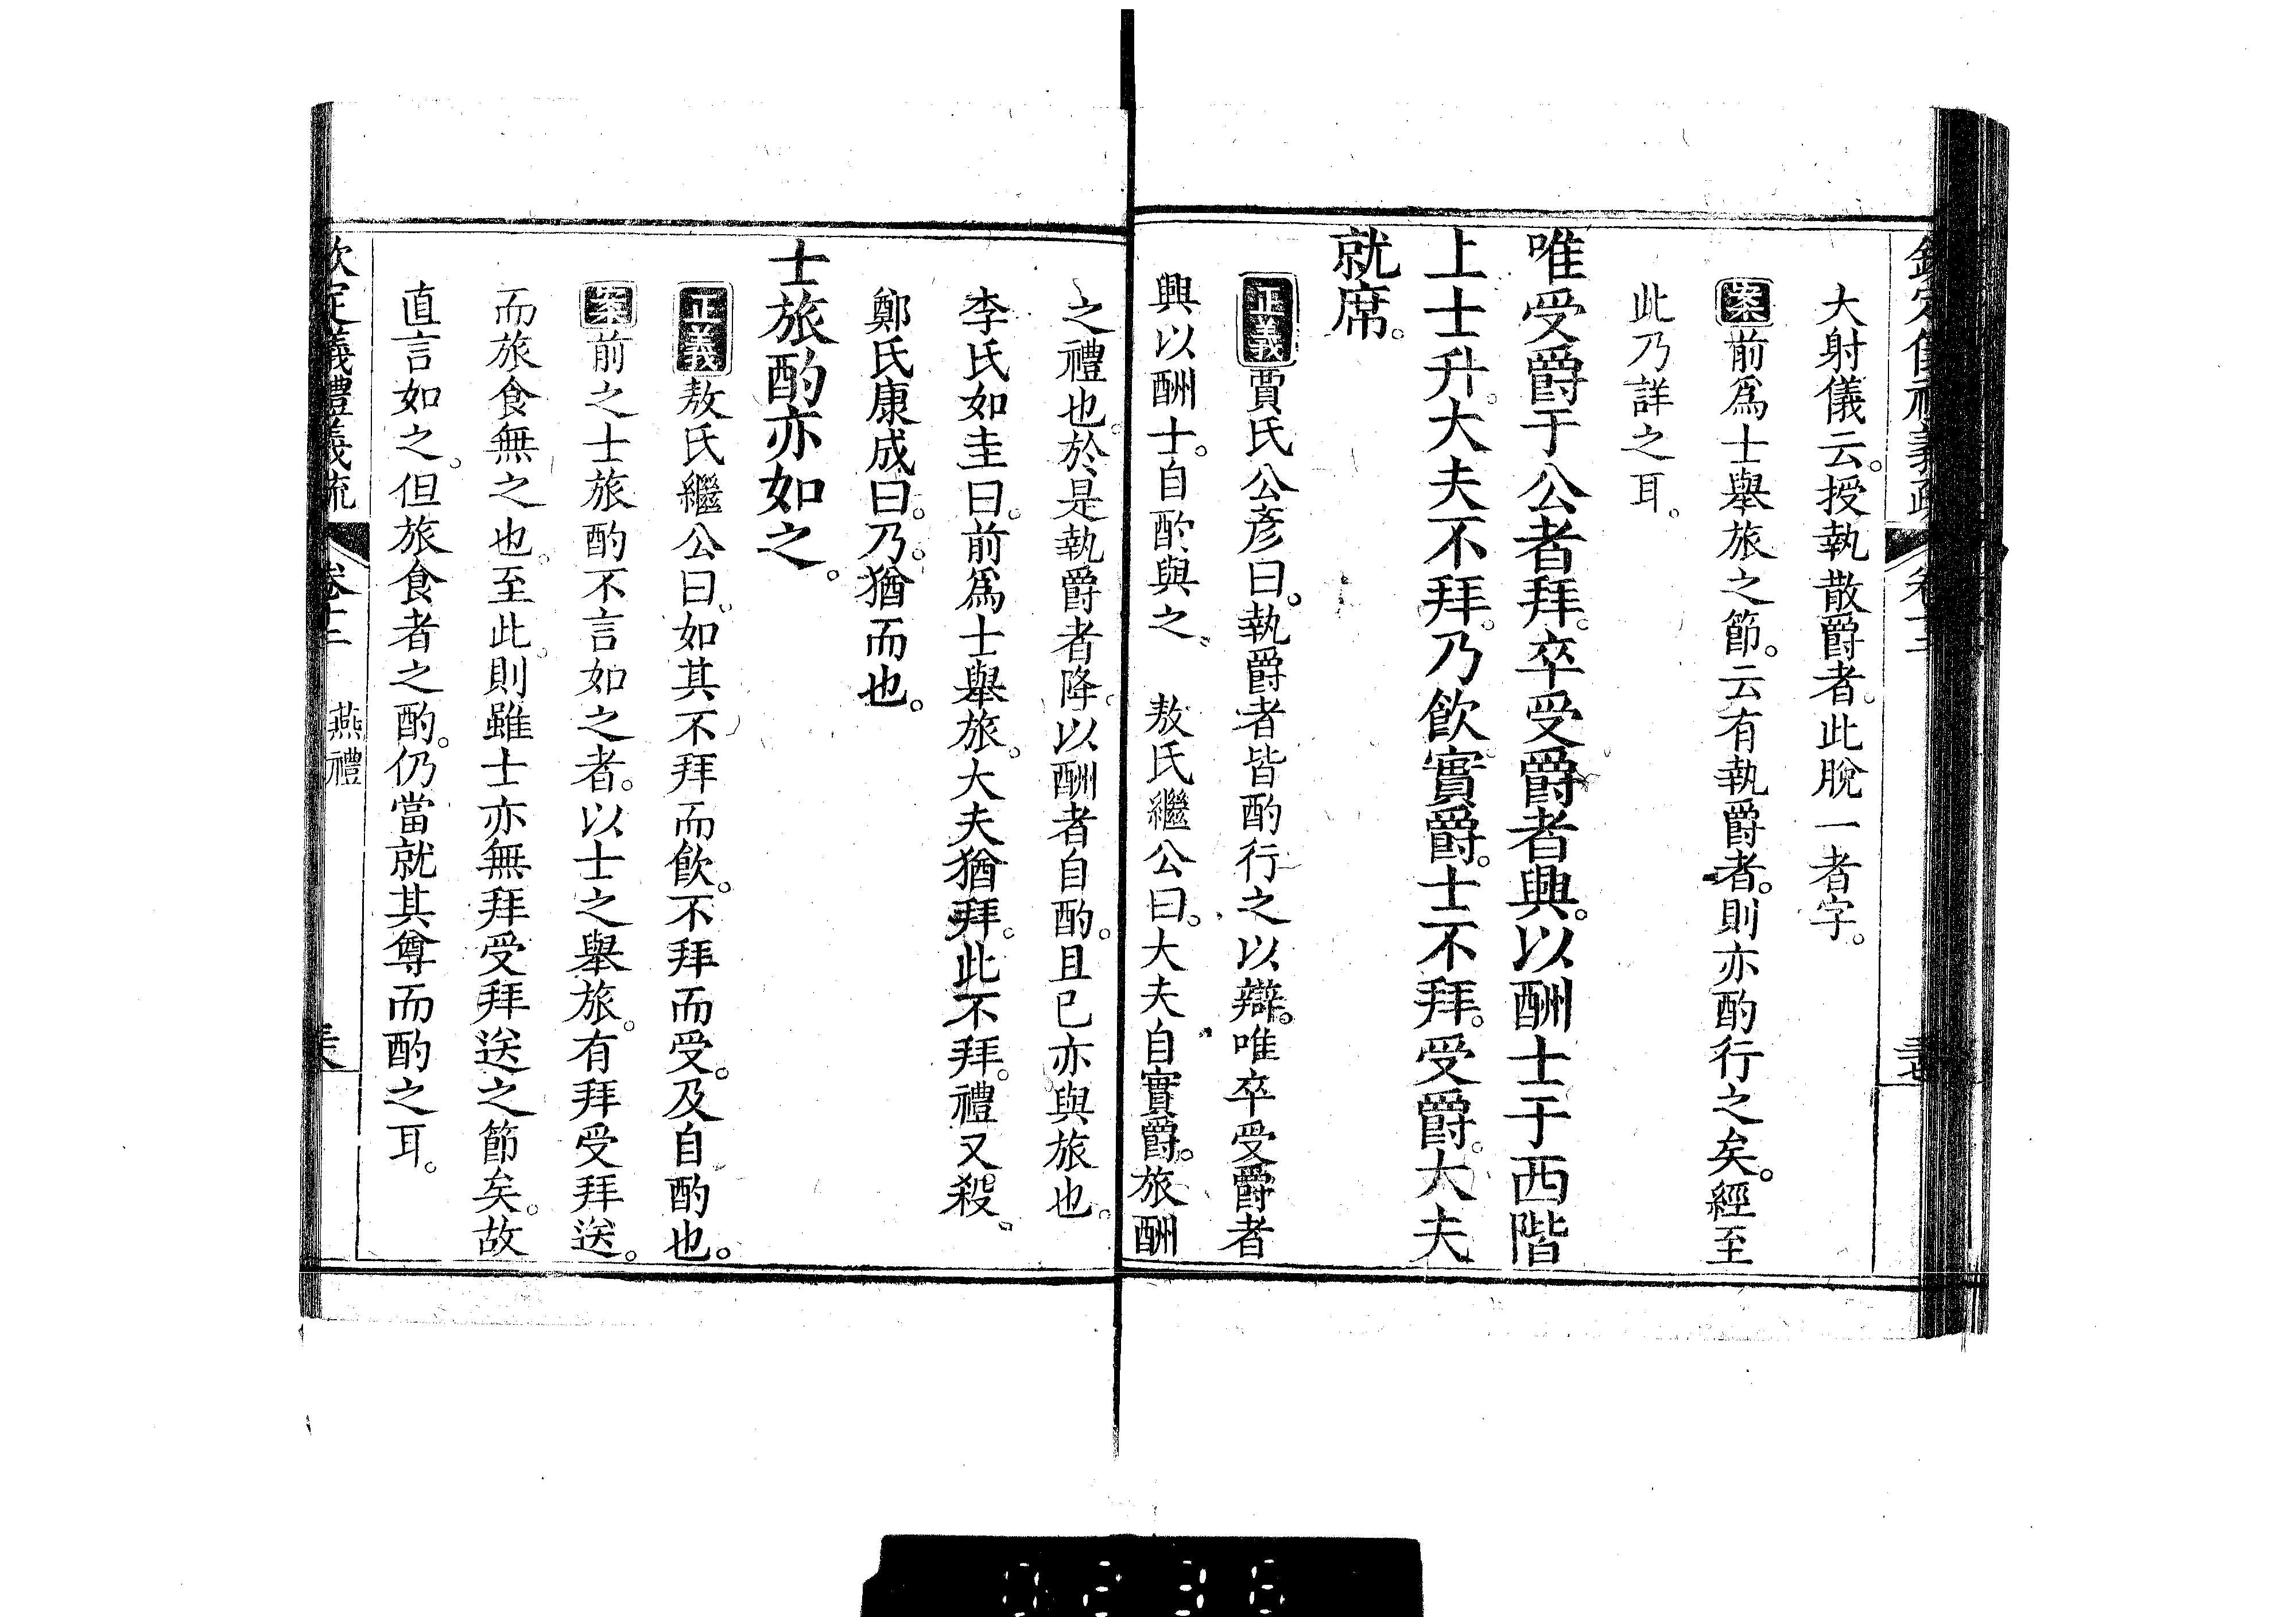 大射儀云。授執散爵者。此脫一者字。
案前爲士舉旅之節。云有執爵者。則亦酌行之矣。經至
此乃詳之耳。
唯受爵于公者拜。卒受爵者興。以酬士于西階
上士升。大夫不拜。乃飲。實爵。士不拜。受爵。大夫
就席。
正義賈氏公彥曰。執爵者皆酌行之以辯。唯卒受爵者
興以酬士。自酌與之、　敖氏繼公曰。大夫自實爵。旅酬
之禮也。於是執爵者降。以酬者自酌。且已亦與旅也。
李氏如圭曰。前爲士舉旅。大夫猶拜。此不拜。禮又殺、
鄭氏康成曰。乃。猶而也。
士旅酌亦如之。
正義敖氏繼公曰。如其不拜而飲。不拜而受。及自酌也。
案前之士旅酌不言如之者。以士之舉旅。有拜受拜送。
而旅食無之也。至此。則雖士亦無拜受拜送之節矣。故
直言如之。但旅食者之酌。仍當就其尊而酌之耳。
欽定儀禮義疏　卷十二　燕禮